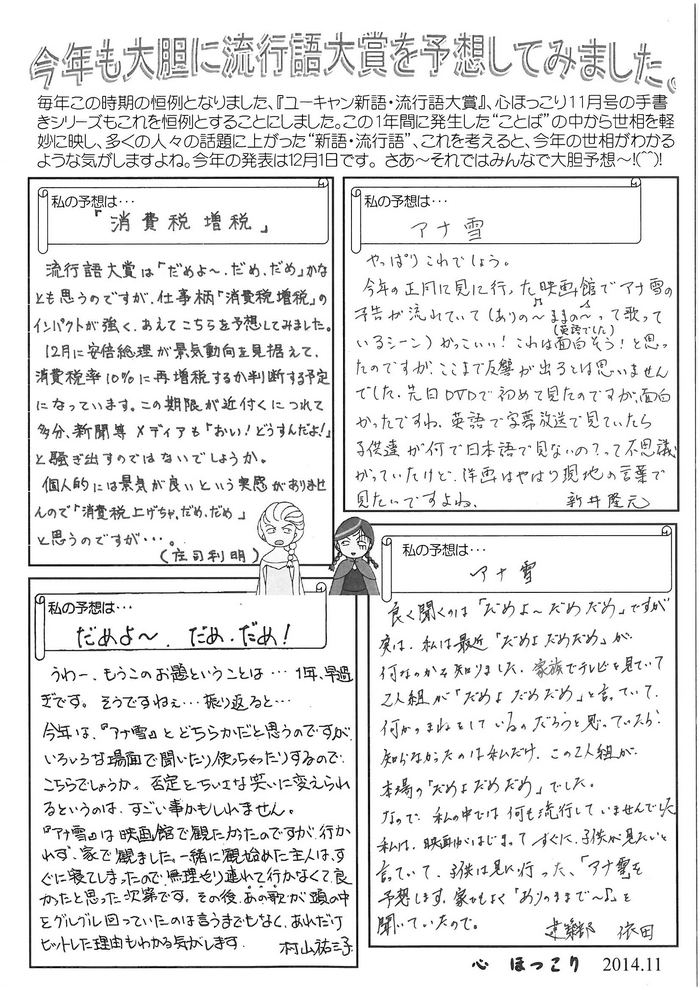 今年も大胆に流行語大賞を予想してみました。
毎年この時期の恒例となりました、『ユーキャン新語・流行語大賞』、心ほっこり11月号の手書
きシリーズもこれを恒例とすることにしました。この1年間に発生した“ことば”の中から世相を軽
妙に映し、多くの人々の話題に上がった“新語・流行語”、これを考えると、今年の世相がわかる
ような気がしますよね。今年の発表は12月1日です。 さあ～それではみんなで大胆予想～!(^^)!
私の予想は…
「消費税増税」
流行語大賞は「だめよ～、だめ、だめ」かな
とも思うのですが、仕事柄「消費税増税」の
インパクトが強く、あえてこちらを予想してみました。
12月に安倍総理が景気動向を見据えて、
消費税率10%に再増税するか判断する予定
になっています。この期限が近付くにつれて
多分、新聞等メディアも「おい!どうすんだよ!」
と騒ぎ出すのではないでしょうか。
個人的には景気が良いという実感がありませ
んので「消費税上げちゃ、だめ、だめ」
と思うのですが…。
(庄司利明)
私の予想は…
アナ雪
やっぱりこれでしょう。
今年の正月に見に行った映画館でアナ雪の
予告が流れていて(ありの～ままの～って歌って
(英語でした)
いるシーン)かっこいい!これは面白そう!と思っ
たのですが、ここまで反響が出るとは思いません
でした。先日DVDで初めて見たのですが、面白
かったですね。英語で字幕放送で見ていたら
子供達が何で日本語で見ないの?って不思議
がっていたけど、洋画はやはり現地の言葉で
見たいですよね。
新井隆元
私の予想は…
だめよ～、だめ、だめ!
うわー、もうこのお題ということは…1年、早過
ぎです。そうですねぇ…振り返ると…
今年は、『アナ雪』とどちらかだと思うのですが、
いろいろな場面で聞いたり使っちゃったりするので、
こちらでしょうか。否定をちいさな笑いに変えられ
るというのは、すごい事かもしれません。
『アナ雪』は映画館で観たかったのですが、行か
れず、家で観ました。一緒に観始めた主人は、す
ぐに寝てしまったので無理やり連れて行かなくて良
かったと思った次第です。その後、あの歌が頭の中
をグルグル回っていたのは言うまでもなく、あれだけ
ヒットした理由もわかる気がします。
村山祐三子
私の予想は…
アナ雪
良く聞くのは「だめよ～だめだめ」ですが
実は、私は最近「だめよだめだめ」が、
何なのかを知りました。家族でテレビを見ていて
2人組が「だめよだめだめ」と言っていて、
何かのまねをしているのだろうと思っていたら、
知らなかったのは私だけ、この2人組が、
本場の「だめよだめだめ」でした。
なので、私の中では何も流行していませんでした
私は、映画がはじまってすぐに、子供が見たいと
言っていて、子供は見に行った、「アナ雪」を
予想します。家でもよく「ありのままで～♪」を
聞いていたので。
建築部 依田
心 ほっこり 2014.11